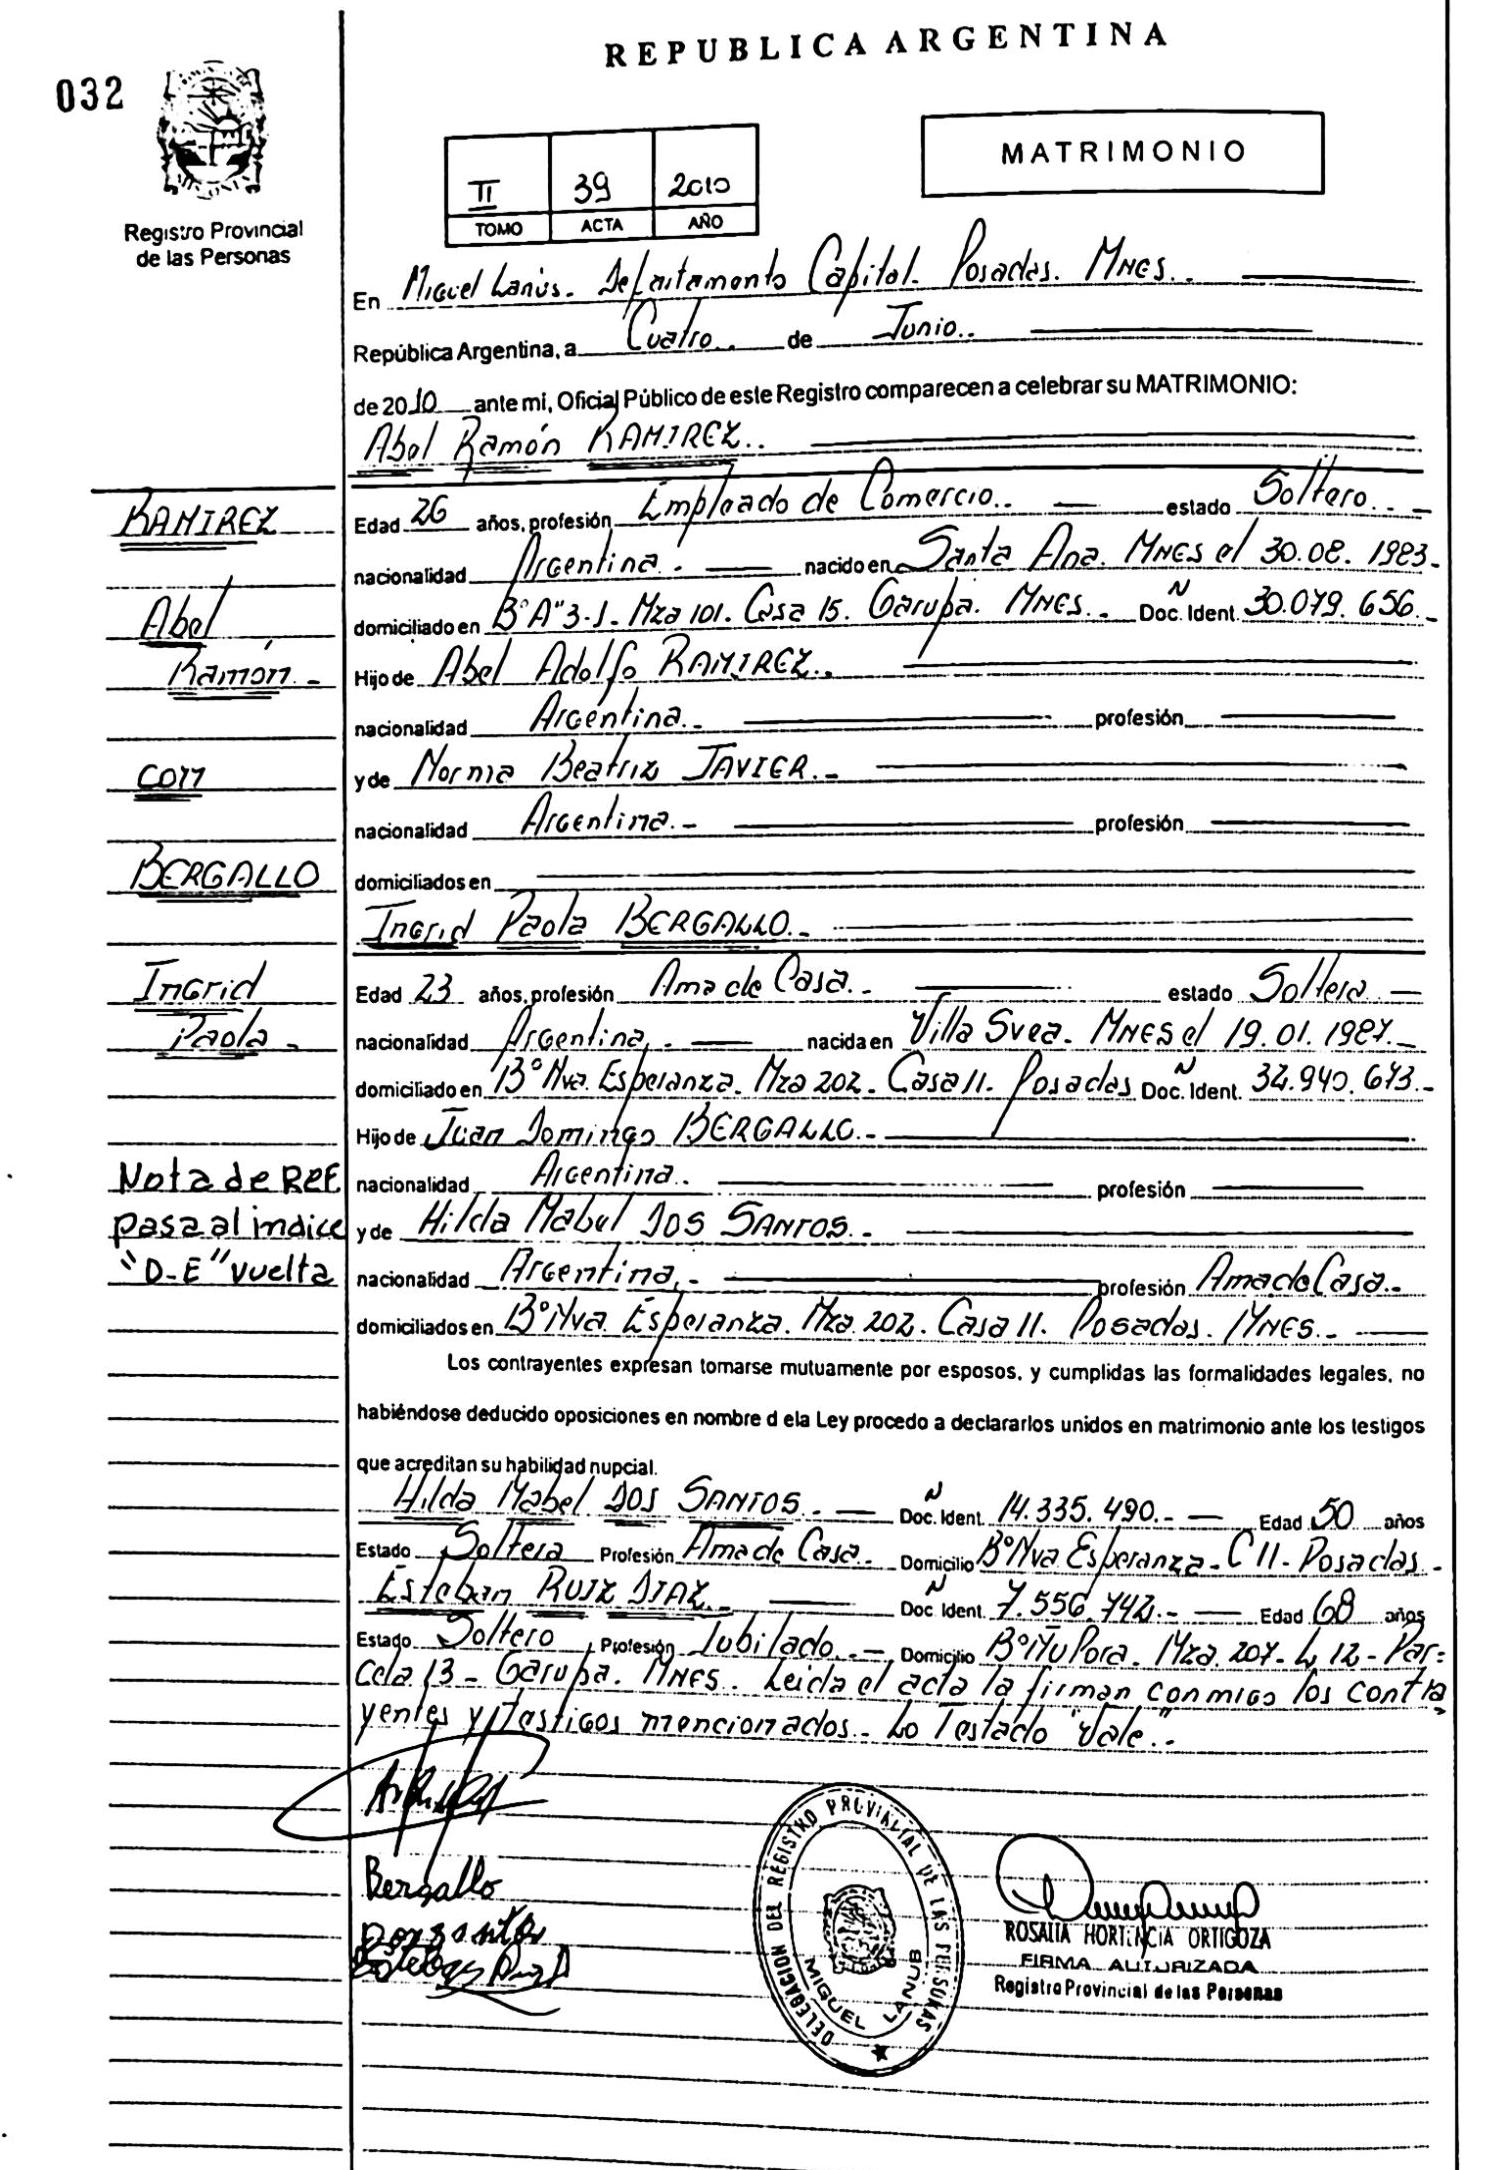 REPUBLICA ARGENTINA
032
MATRIMONIO
II 39 2010
TOMO ACTA AÑO
Registro Provincial
de las Personas
En Miguel Lanús. Departamento Capital. Posadas. Mnes..
República Argentina, a Cuatro.. de Junio..
de 2010 ante mi, Oficial Público de este Registro comparecen a celebrar su MATRIMONIO:
Abel Ramón RAMIREZ..
RAMIREZ
Edad 26 años, profesión Empleado de Comercio.. estado Soltero..
nacionalidad Argentina. nacido en Santa Ana. Mnes el 30.08.1983.
Abel
domiciliado en B° A" 3-1. Mza 101. Casa 15. Garupa. Mnes.. N Doc. Ident. 30.079.656.
Ramón.-
Hijo de Abel Adolfo RAMIREZ..
nacionalidad Argentina.. profesión
con
y de Norma Beatriz JAVIER.-
nacionalidad Argentina.- profesión
BERGALLO
domiciliados en
Ingrid Paola BERGALLO.-
Ingrid
Edad 23 años, profesión Ama de Casa.. estado Soltera
Paola -
nacionalidad Argentina. nacida en Villa Svea. Mnes el 19.01.1987.-
domiciliado en B° Nva. Esperanza. Mza 202. Casa 11. Posadas N Doc. Ident. 32.940.673.-
Hijo de Juan Domingo BERGALLO.-
Nota de REF
nacionalidad Argentina.. profesión
pasa al indice
y de Hilda Mabel DOS SANTOS..
"D-E" vuelta
nacionalidad Argentina.- profesión Ama de Casa..
domiciliados en B° Nva. Esperanza. Mza. 202. Casa 11. Posadas. Mnes..
Los contrayentes expresan tomarse mutuamente por esposos, y cumplidas las formalidades legales, no
habiéndose deducido oposiciones en nombre d ela Ley procedo a declararlos unidos en matrimonio ante los testigos
que acreditan su habilidad nupcial.
Hilda Mabel DOS SANTOS.. N Doc. Ident. 14.335.490.- Edad 50 años
Estado Soltera Profesión Ama de Casa.. Domicilio B° Nva. Esperanza - C 11 - Posadas.-
Esteban RUIZ DIAZ.. N Doc. Ident. 7.556.742.- Edad 68 años
Estado Soltero Profesión Jubilado.- Domicilio B° Ñu Pora. Mza. 207 - L 12 - Par=
cela 13 - Garupa. Mnes.. Leida el acta la firman conmigo los contra
yentes y Testigos mencionados.. Lo Testado "Vale"..
Bergallo
Dos santos
Esteban Ruiz D
DELEGACION DEL REGISTRO PROVINCIAL DE LAS PERSONAS
MIGUEL LANUS
ROSALIA HORTENCIA ORTIGOZA
FIRMA AUTORIZADA
Registro Provincial de las Personas